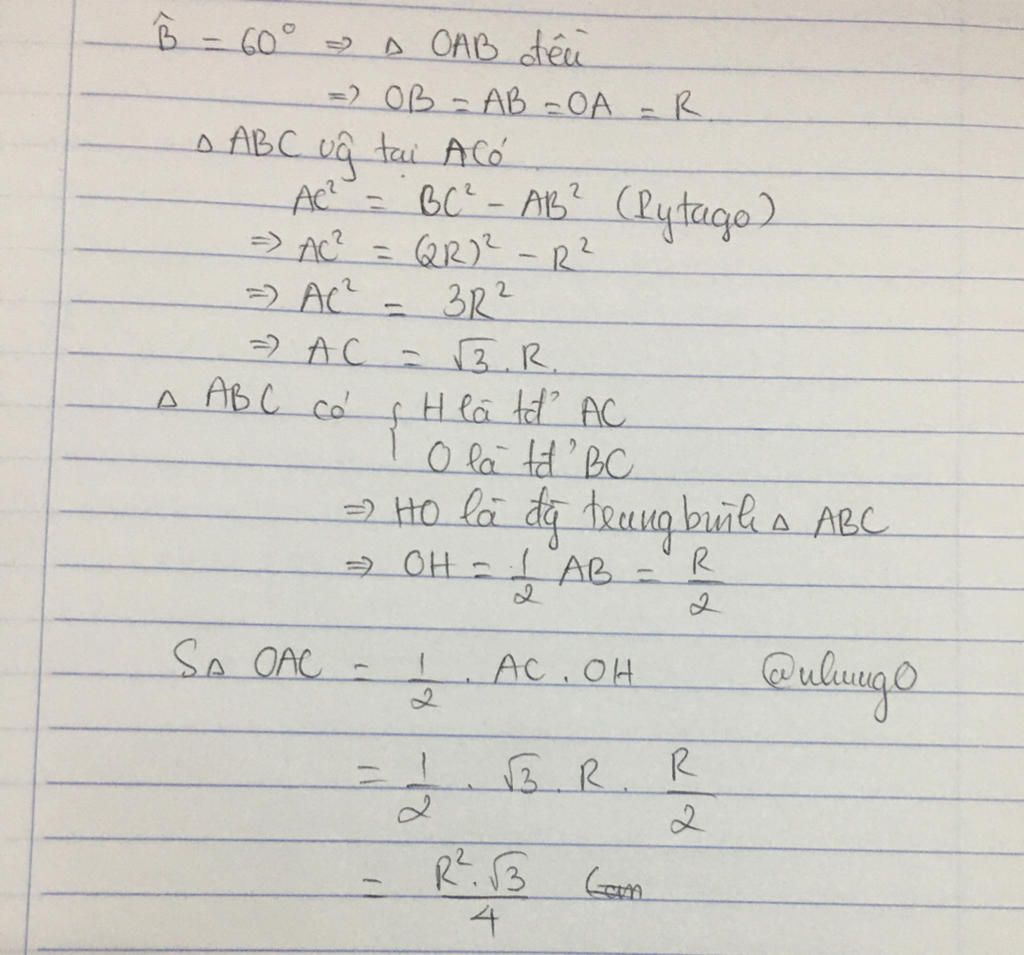 B̂ = 60° ⇒ △ OAB đều
⇒ OB = AB = OA = R.
△ ABC vg̃ tại A Có
AC² = BC² - AB² (Pytago)
⇒ AC² = (2R)² - R²
⇒ AC² = 3R²
⇒ AC = √3. R.
△ ABC có { H là tđ' AC
O là tđ' BC
⇒ HO là đg̃ trung bình △ ABC
⇒ OH = 1/2 AB = R/2
S△ OAC = 1/2 . AC . OH @nhung0
= 1/2 . √3 . R . R/2
= R².√3/4